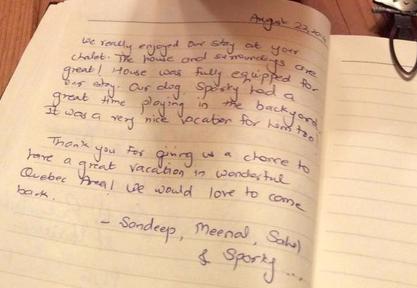 August 23,
We really enjoyed our stay at your
chalet. The house and surroundings are
great! House was fully equipped for
our stay. Our dog, Sparky had a
great time playing in the backyard
It was a very nice vacation for him too
Thank you for giving us a chance to
have a great vacation in wonderful
Quebec Area! We would love to come
back.
- Sandeep, Meenal, Sahil
& Sparky ...